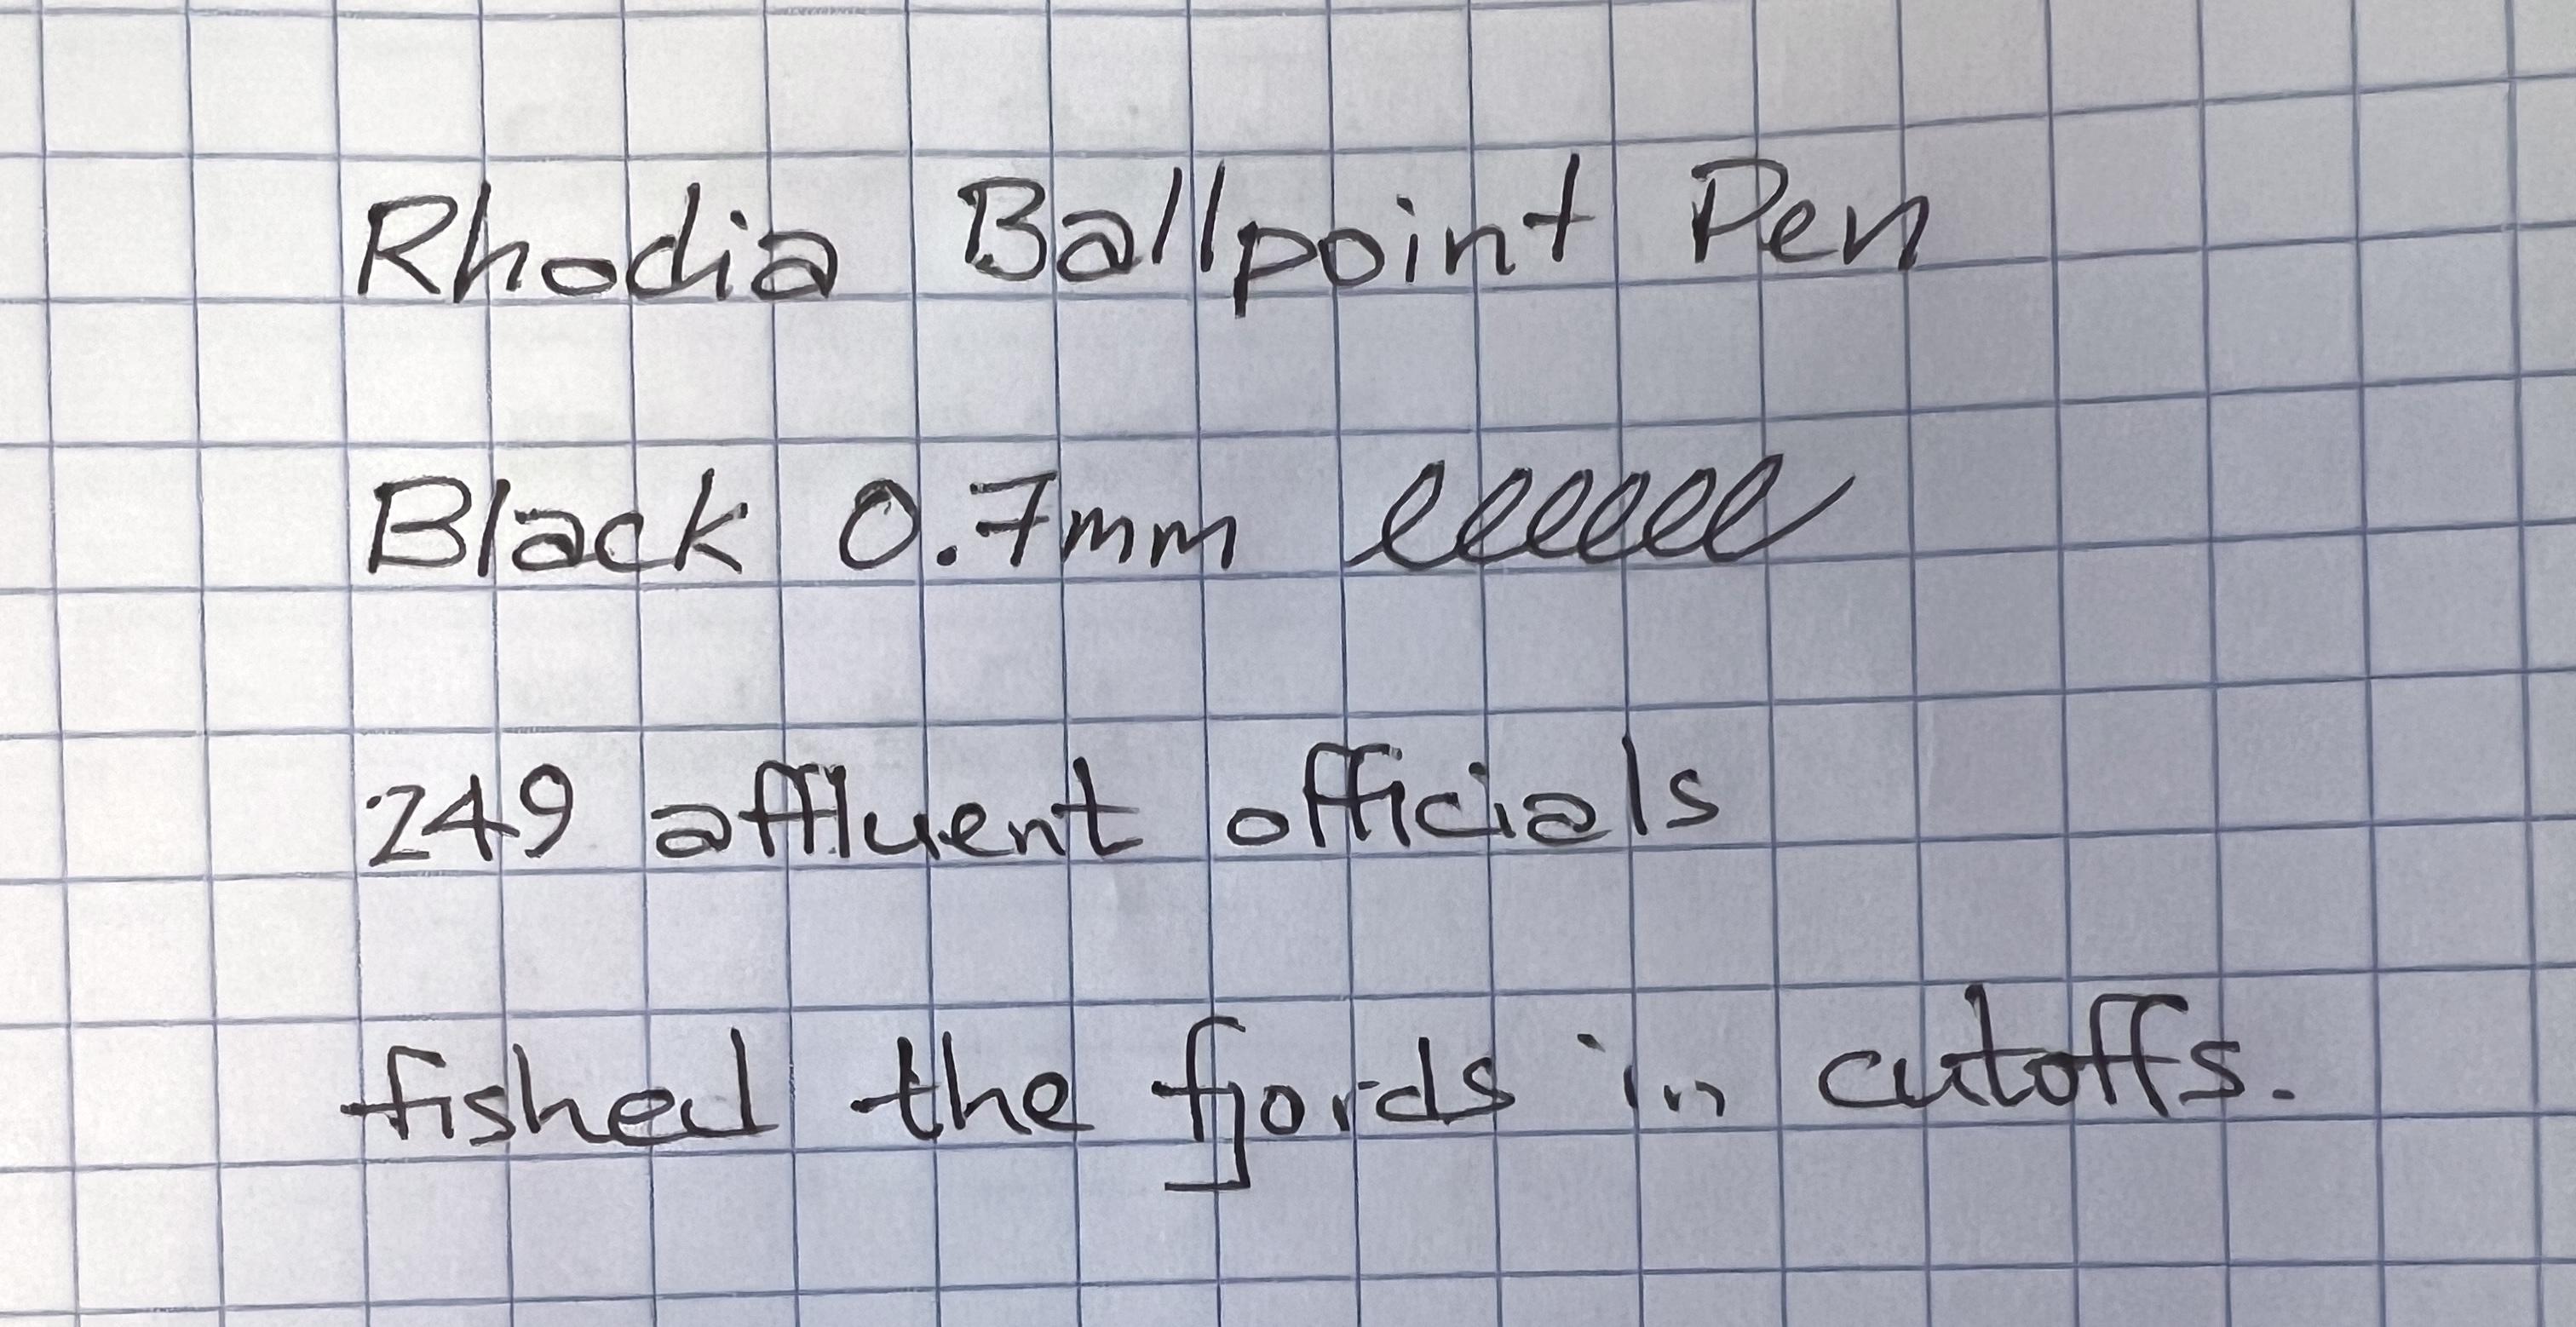 Rhodia Ballpoint Pen
Black 0.7mm
249 affluent officials
fished the fjords in cutoffs.